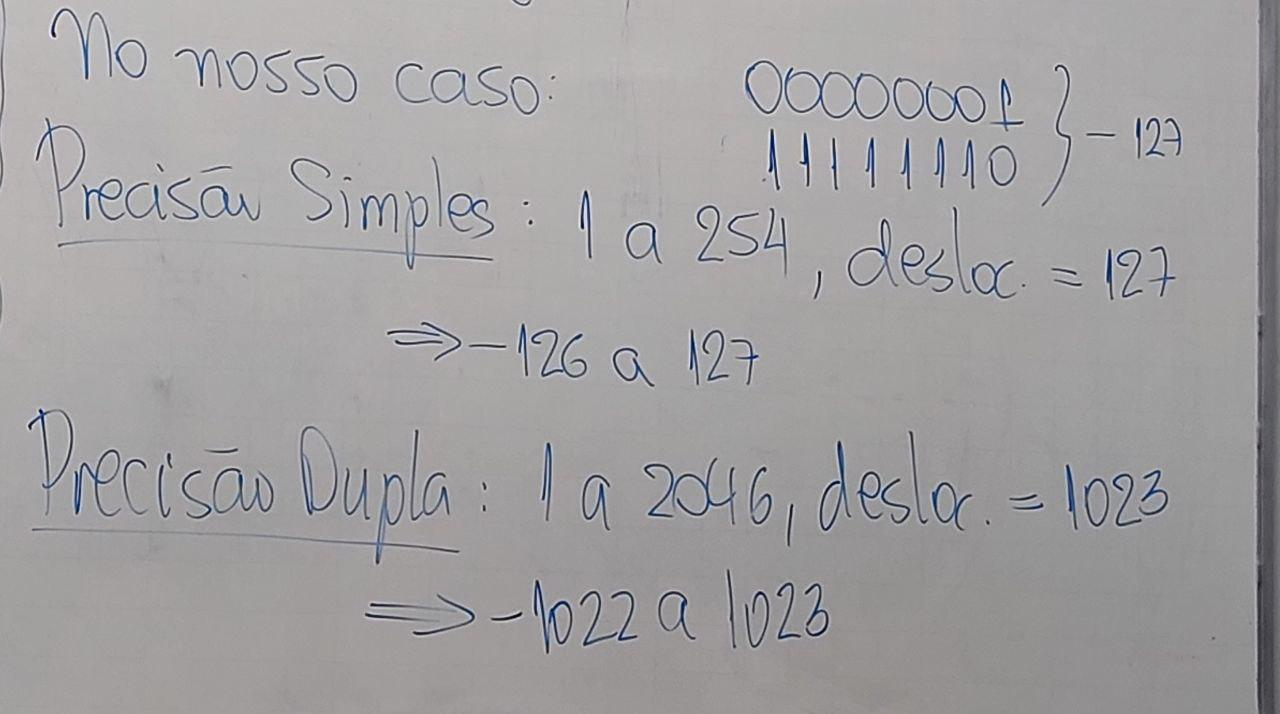 No nosso caso:
00000001
11111110 } - 127
Precisão Simples: 1 a 254, desloc. = 127
⇒ -126 a 127
Precisão Dupla: 1 a 2046, desloc. = 1023
⇒ -1022 a 1023